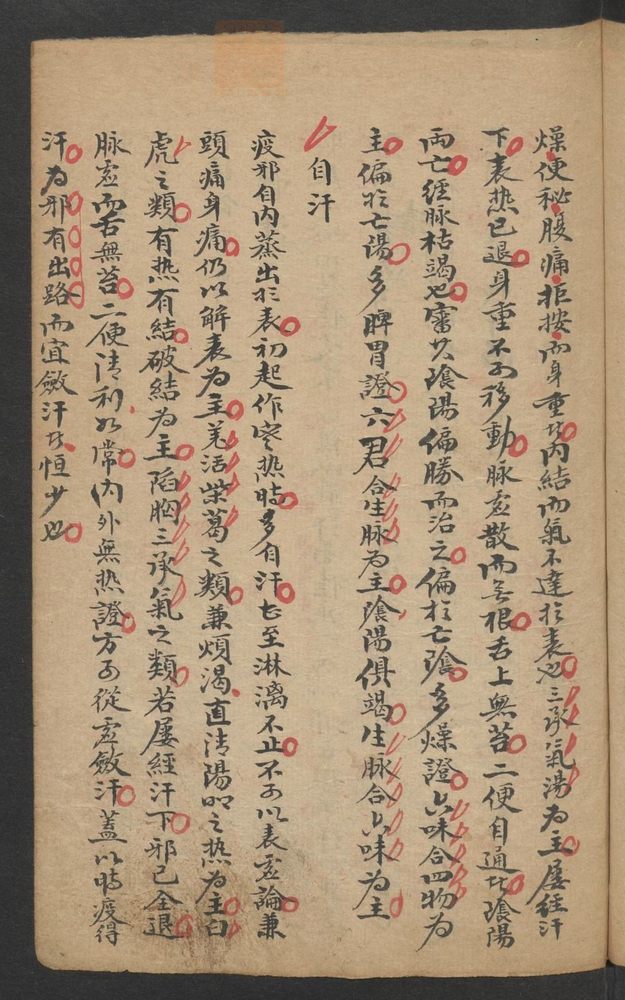 燥便秘腹痛拒按而身重者内結而氣不達於表也三承氣湯为主屡経汗
下表热已退身重不可移動脉虚散而無根舌上無苔二便自通者陰陽
兩亡経脉枯竭也審其陰陽偏勝而治之偏於亡陰多燥證六味合四物为
主偏於亡陽多脾胃證六君合生脉为主陰陽俱竭生脉合六味为主
自汗
疫邪自内蒸出於表初起作寒热時多自汗甚至淋漓不止不可以表虚論兼
頭痛身痛仍以解表为主羌活柴葛之類兼煩渴直清陽明之热为主白
虎之類有热有結破結为主陷胸三承氣之類若屡經汗下邪已全退
脉虚而舌無苔二便清利如常内外無热證方可從虚斂汗蓋以時疫得
汗为邪有出路而宜斂汗者恒少也